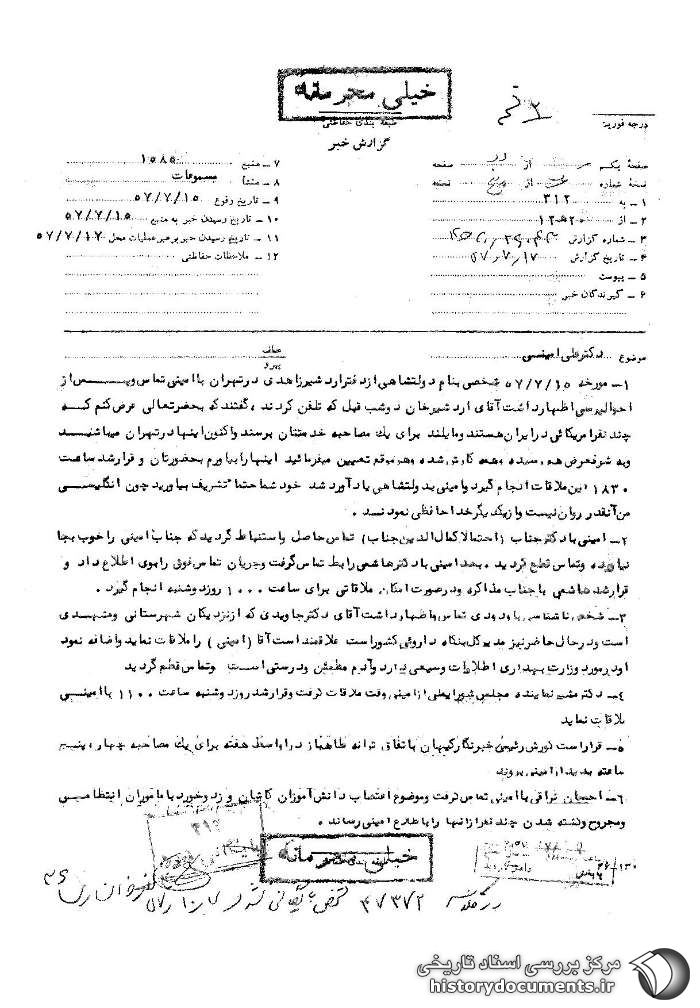 خیلی محرمانه
طبقه بندی حفاظتی
درجه فوریت
گزارش خبر
صفحه یکم از صفحه
نسخه شماره از نسخه
۱ – به ۳۱۲
۲ – از ۱۲ه۲۰
۳ – شماره گزارش
۴ – تاریخ گزارش ۵۷/۷/۱۷
۵ – پیوست
۶ – گیرندگان خبر
۷ – منبع ۱۵۸۵
۸ – منشأ مسموعات
۹ – تاریخ وقوع ۵۷/۷/۱۵
۱۰ – تاریخ رسیدن خبر به منبع ۵۷/۷/۱۵
۱۱ – تاریخ رسیدن خبر برهبر عملیات محل ۵۷/۷/۱۷
۱۲ – ملاحظات حفاظتی
موضوع دکترعلی امینی
عطف
پیرو
۱- مورخه ۵۷/۷/۱۵ شخصی بنام دولتشاهی از دفتر اردشیرزاهدی در تهران با امینی تماس و پس از
احوالپرسی اظهار داشت آقای اردشیرخان دوشب قبل که تلفن کردند ، گفتند که بحضرتعالی عرض کنم که
چند نفر امریکائی در ایران هستند و مایلند برای یک مصاحبه خدمتتان برسند و اکنون اینها در تهران میباشند
و به شرفعرض هم رسیده و همه کارش شده و هر موقع تعیین میفرمائید اینها را بیاورم بحضورتان و قرار شد ساعت
۱۸۳۰ این ملاقات انجام گیرد و امینی بدولتشاهی یادآور شد خود شما حتما تشریف بیاورید چون انگلیسی
من آنقدر روان نیست و از یکدیگر خداحافظی نمودند .
۲- امینی با دکتر جناب (احتمالا کمال الدین جناب) تماس حاصل و استنباط گردید که جناب امینی را خوب بجا
نیاورده و تماس قطع گردید . بعد امینی با دکتر هاشمی رابط تماس گرفت و جریان تماس فوق را بوی اطلاع داد و
قرار شد هاشمی با جناب مذاکره و در صورت امکان ملاقاتی برای ساعت ۱۰۰۰ روز دوشنبه انجام گیرد .
۳- شخص ناشناسی با تماس و اظهار داشت آقای دکتر جاویدی که از نزدیکان شهرستانی و مشهدی
است و در حال حاضر نیز مدیرکل بنگاه داروئی کشور است علاقمند است آقا (امینی) را ملاقات نماید و اضافه نمود
او در مورد وزارت بهداری اطلاعات وسیعی دارد و آدم مطمئن و درستی است و تماس قطع گردید
۴- دکتر مشیر نماینده مجلس شورایملی از امینی وقت ملاقات گرفت و قرار شد روز دوشنبه ساعت ۱۱۰۰ با امینی
ملاقات نماید
۵- قرار است کورش رئیسی خبرنگار کیهان باتفاق ترانه طاهباز در اواسط هفته برای یک مصاحبه چهار ، پنج
ساعته بدیدار امینی بروند
۶- احسان نراقی با امینی تماس گرفت و موضوع اعتصاب دانش آموزان کاشان و زد و خورد با ماموران انتظامی
و مجروح و کشته شدن چند نفر از آنها را باطلاع امینی رساند .
خیلی محرمانه
۳۱۲
۴۷۳۷۲
مرکز بررسی اسناد تاریخی
historydocuments.ir